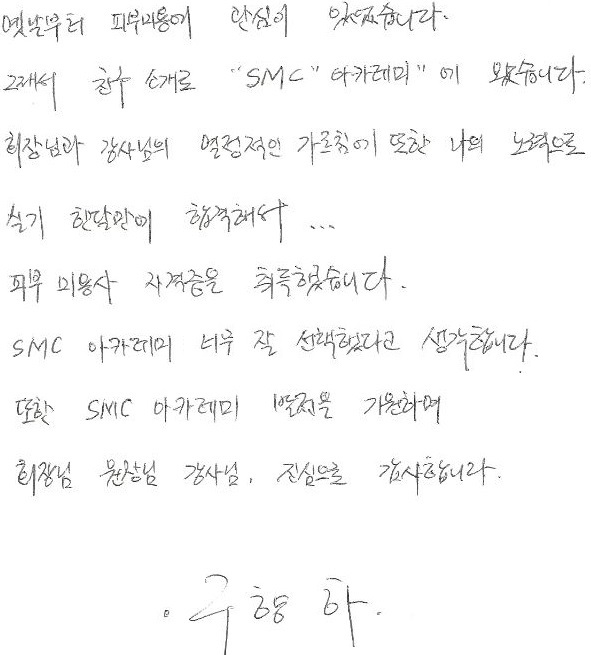 옛날부터 피부미용에 관심이 있었습니다.
그래서 친구 소개로 "SMC" 아카데미" 에 왔습니다.
회장님과 강사님의 열정적인 가르침에 또한 나의 노력으로
실기 한달만에 합격해서 ...
피부 미용사 자격증을 취득했습니다.
SMC 아카데미 너무 잘 선택했다고 생각합니다.
또한 SMC 아카데미 발전을 기원하며
회장님 원장님 강사님. 진심으로 감사합니다.
. 구형하.